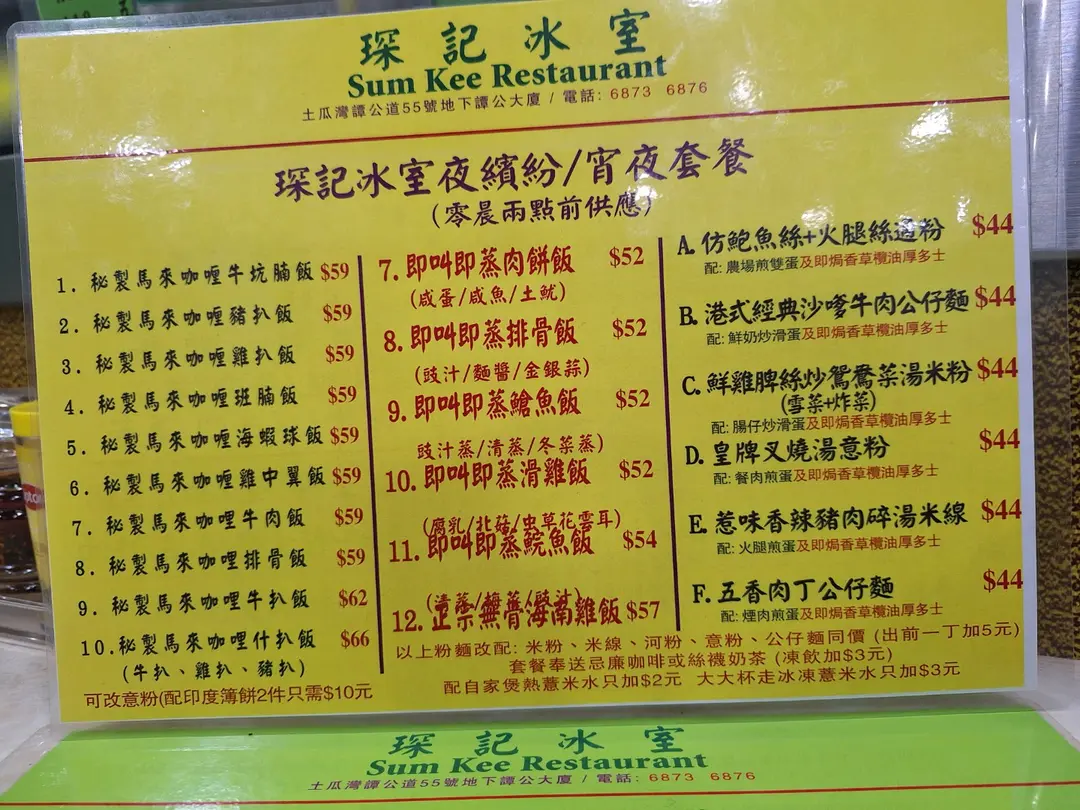 琛記冰室
Sum Kee Restaurant
土瓜灣譚公道55號地下譚公大廈 / 電話: 6873 6876
琛記冰室夜繽紛/宵夜套餐
(零晨兩點前供應)
1. 秘製馬來咖喱牛坑腩飯 $59
2. 秘製馬來咖喱豬扒飯 $59
3. 秘製馬來咖喱雞扒飯 $59
4. 秘製馬來咖喱班腩飯 $59
5. 秘製馬來咖喱海蝦球飯 $59
6. 秘製馬來咖喱雞中翼飯 $59
7. 秘製馬來咖哩牛肉飯 $59
8. 秘製馬來咖哩排骨飯 $59
9. 秘製馬來咖哩牛扒飯 $62
10. 秘製馬來咖哩什扒飯 $66
(牛扒、雞扒、豬扒)
可改意粉(配印度簿餅2件只需$10元
7. 即叫即蒸肉餅飯 $52
(咸蛋/咸魚/土魷)
8. 即叫即蒸排骨飯 $52
(豉汁/麵醬/金銀蒜)
9. 即叫即蒸鯧魚飯 $52
豉汁蒸/清蒸/冬菜蒸)
10. 即叫即蒸滑雞飯 $52
(腐乳/北菇/虫草花雲耳)
11. 即叫即蒸鯇魚飯 $54
12. 正宗無骨海南雞飯 $57
A. 仿鮑魚絲+火腿絲通粉 $44
配: 農場煎雙蛋及即焗香草欖油厚多士
B. 港式經典沙嗲牛肉公仔麵 $44
配: 鮮奶炒滑蛋及即焗香草欖油厚多士
C. 鮮雞脾絲炒鴛鴦菜湯米粉 $44
(雪菜+炸菜)
配: 腸仔炒滑蛋及即焗香草欖油厚多士
D. 皇牌叉燒湯意粉 $44
配: 餐肉煎蛋及即焗香草欖油厚多士
E. 惹味香辣豬肉碎湯米線 $44
配: 火腿煎蛋及即焗香草欖油厚多士
F. 五香肉丁公仔麵 $44
配: 煙肉煎蛋及即焗香草欖油厚多士
以上粉麵改配: 米粉、米線、河粉、意粉、公仔麵同價 (出前一丁加5元)
套餐奉送忌廉咖啡或絲襪奶茶 (凍飲加$3元)
配自家煲熱薏米水只加$2元 大大杯走冰凍薏米水只加$3元
琛記冰室
Sum Kee Restaurant
土瓜灣譚公道55號地下譚公大廈 / 電話: 6873 6876